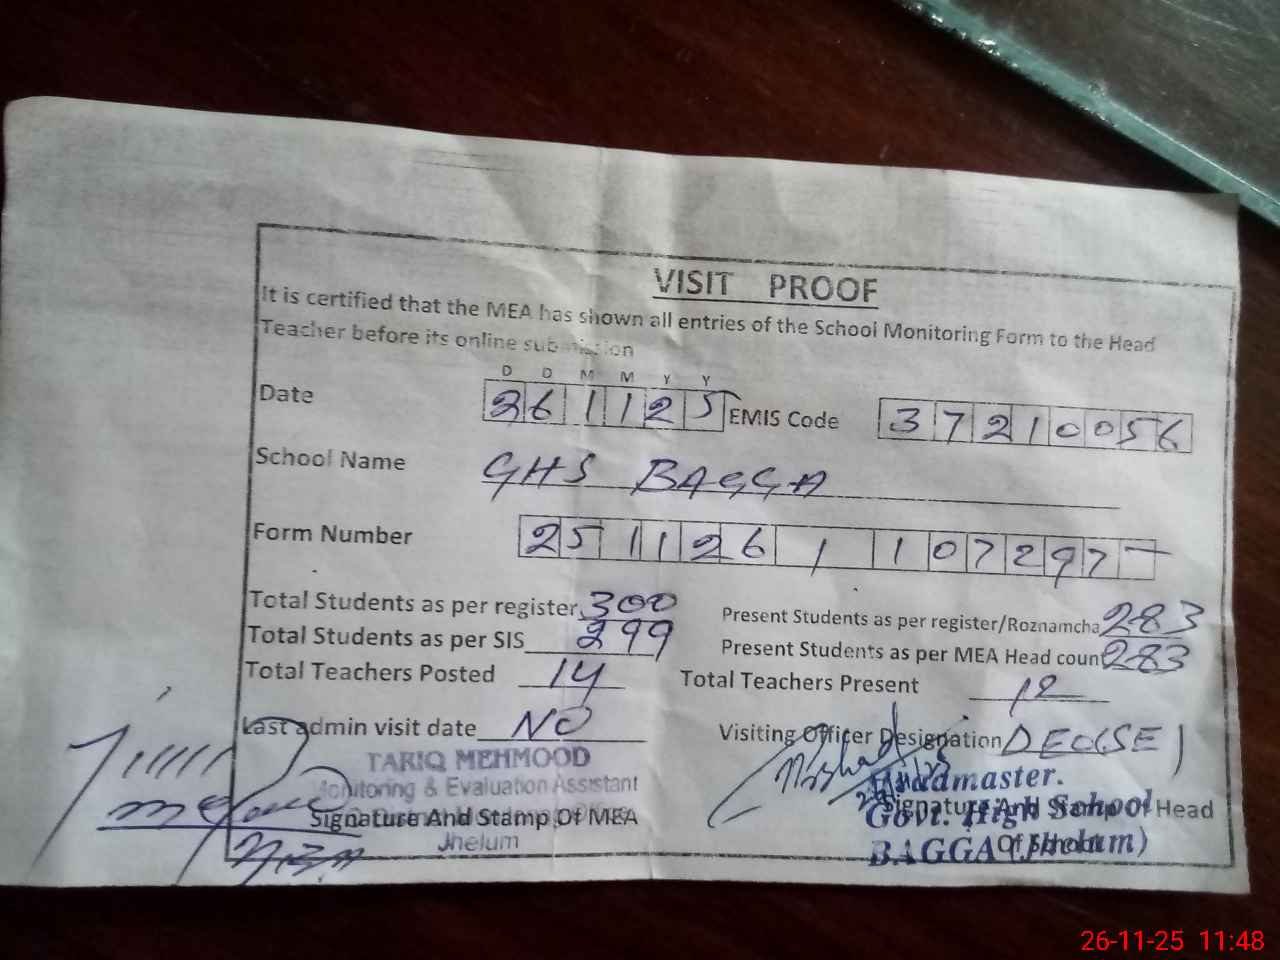 VISIT PROOF
It is certified that the MEA has shown all entries of the School Monitoring Form to the Head
Teacher before its online submission
D D M M Y Y
Date 26 11 25 EMIS Code 37210056
School Name GHS BAGGA
Form Number 25 11 26 1 107297
Total Students as per register 300 Present Students as per register/Roznamcha 283
Total Students as per SIS 299 Present Students as per MEA Head count 283
Total Teachers Posted 14 Total Teachers Present 12
Last admin visit date NO Visiting Officer Designation DEO(SE)
TARIQ MEHMOOD
Monitoring & Evaluation Assistant
Signature And Stamp Of MEA
Jhelum
Headmaster.
Signature And Stamp Of Head
Govt. High School
Of School
BAGGA (Jhelum)
26-11-25 11:48